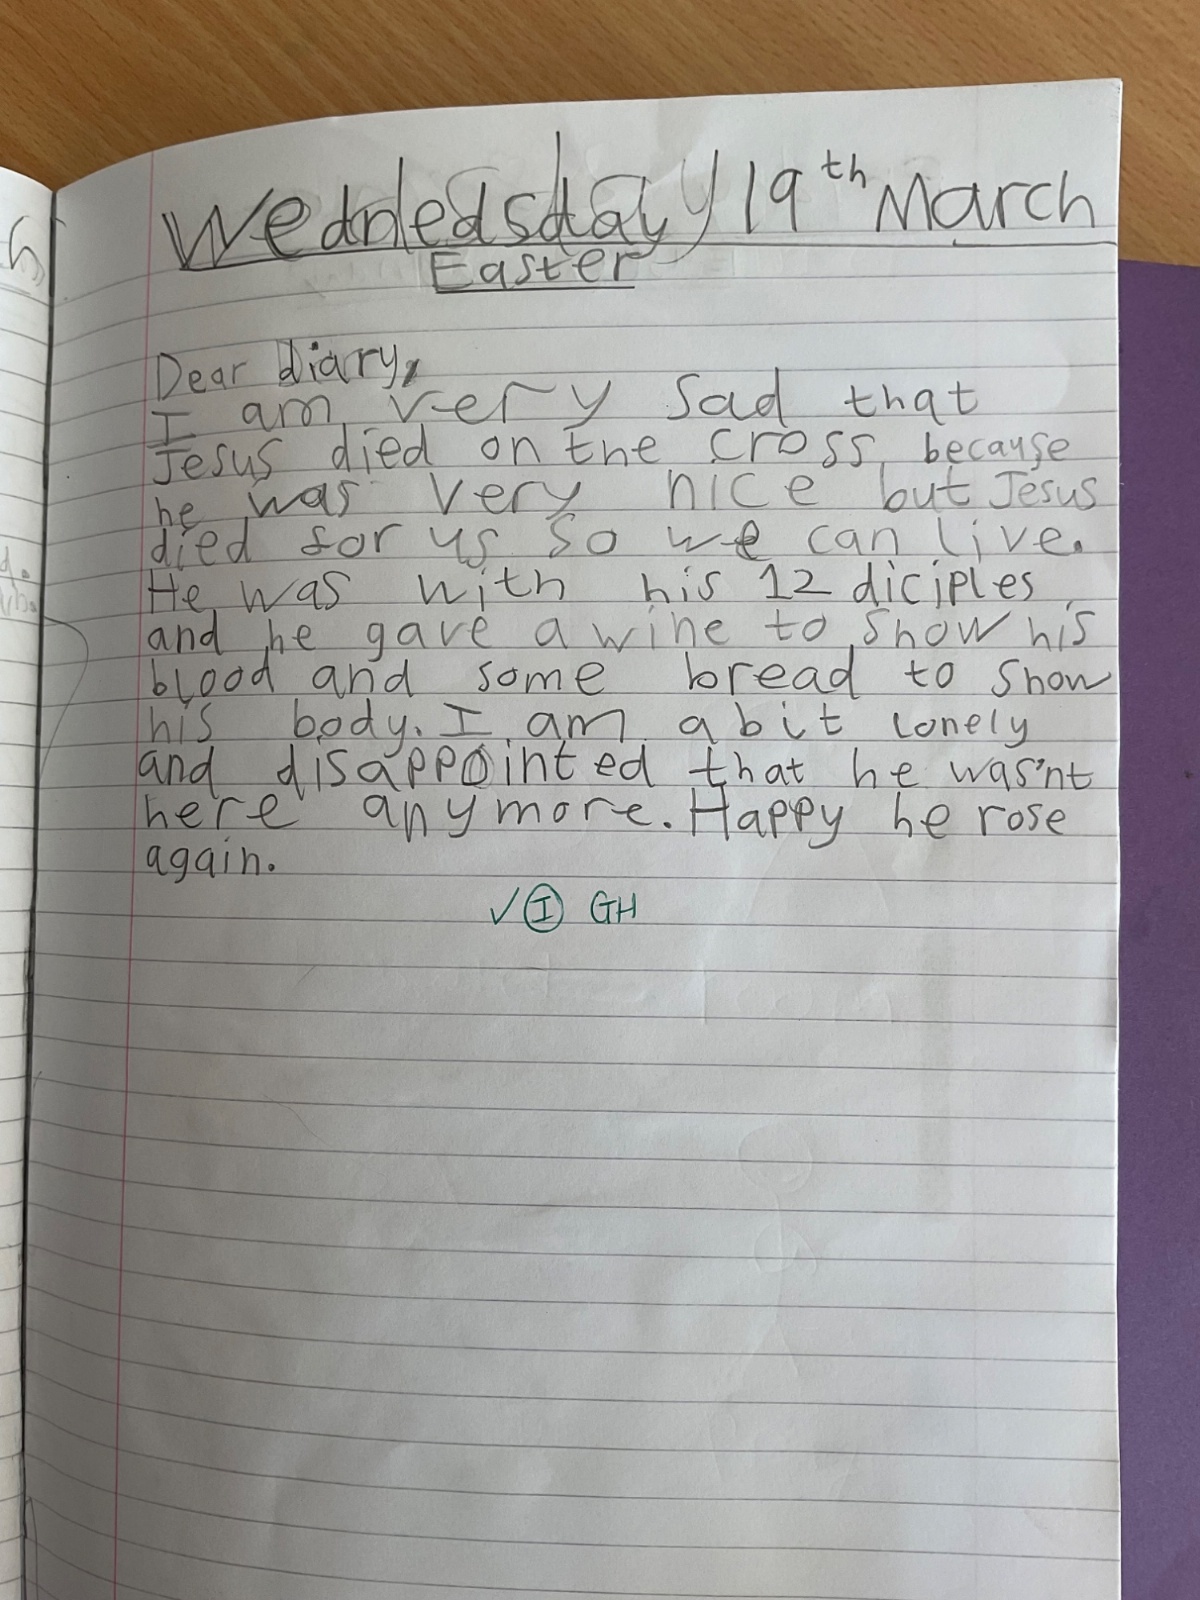 Wednesday 19th March
Easter
Dear diary,
I am very sad that
Jesus died on the cross, because
he was very nice but Jesus
died for us so we can live.
He was with his 12 diciples
and he gave a wine to show his
blood and some bread to show
his body. I am a bit lonely
and disappointed that he was'nt
here anymore. Happy he rose
again.
✓ I GH